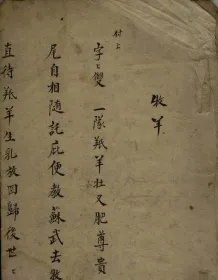 牧羊
付上
字〻雙 一隊羝羊壮又肥尊貴
尼自相随託庇便教蘇武去牧
直待羝羊生乳放回歸後世〻